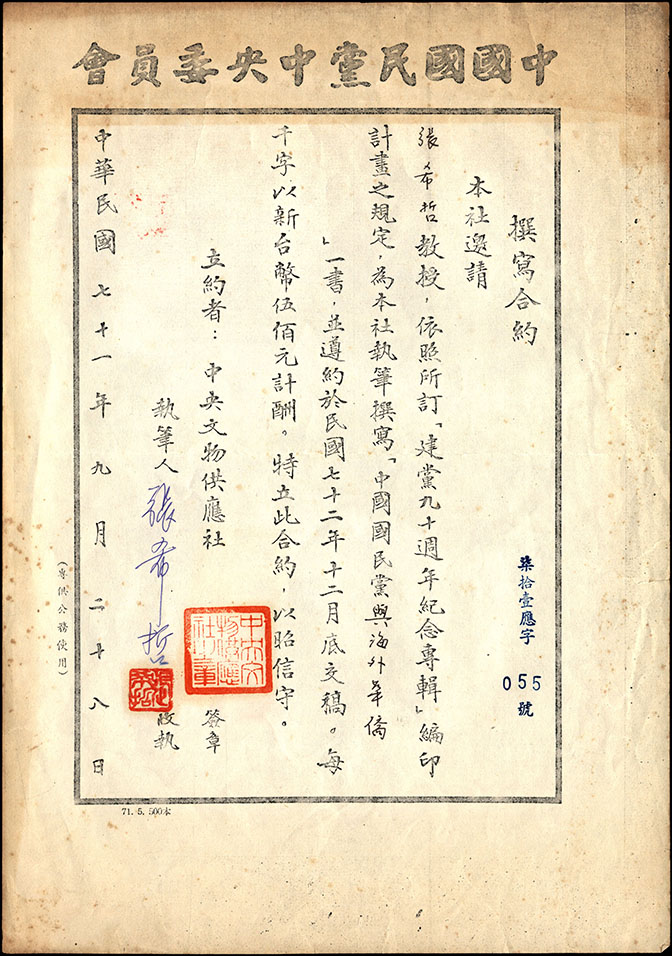 中國國民黨中央委員會
撰寫合約
本社邀請
張希哲教授，依照所訂「建黨九十週年紀念專輯」編印
計畫之規定，為本社執筆撰寫「中國國民黨與海外華僑
」一書，並遵約於民國七十二年十二月底交稿。每
千字以新台幣伍佰元計酬。特立此合約，以昭信守。
立約者：中央文物供應社
簽章
執筆人 張希哲
中華民國七十一年九月二十八日
柒拾壹應字
055
號
中央文
物供應
社之章
(專供公務使用)
71. 5. 500本